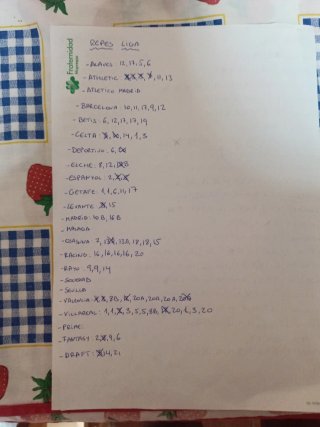 Fraternidad
Muprespa
REPES LIGA
- ALAVES: 12, 17, 5, 6
- ATHLETIC 11, 13
- ATLETICO MADRID
- BARCELONA: 10, 11, 17, 9, 12
- BETIS: 6, 12, 17, 17, 19
- CELTA 14, 1, 3
- DEPORTIVO: 6,
- ELCHE: 8, 12, 3
- ESPANYOL: 2,
- GETAFE: 1, 1, 6, 11, 17
- LEVANTE: 15
- MADRID: 10B, 16B
- MALAGA
- OSASUNA: 7, 13A, 18, 18, 15
- RACING: 16, 16, 16, 16, 20
- RAYO: 9, 9, 14
- SOCIEDAD
- SEVILLA
- VALENCIA: 8B, 20A, 20A, 20A
- VILLAREAL: 1, 1, 3, 5, 5, 8B, 20, 1, 3, 20
- PRIME:
- FANTASY: 2, 9, 6
- DRAFT: 14, 21